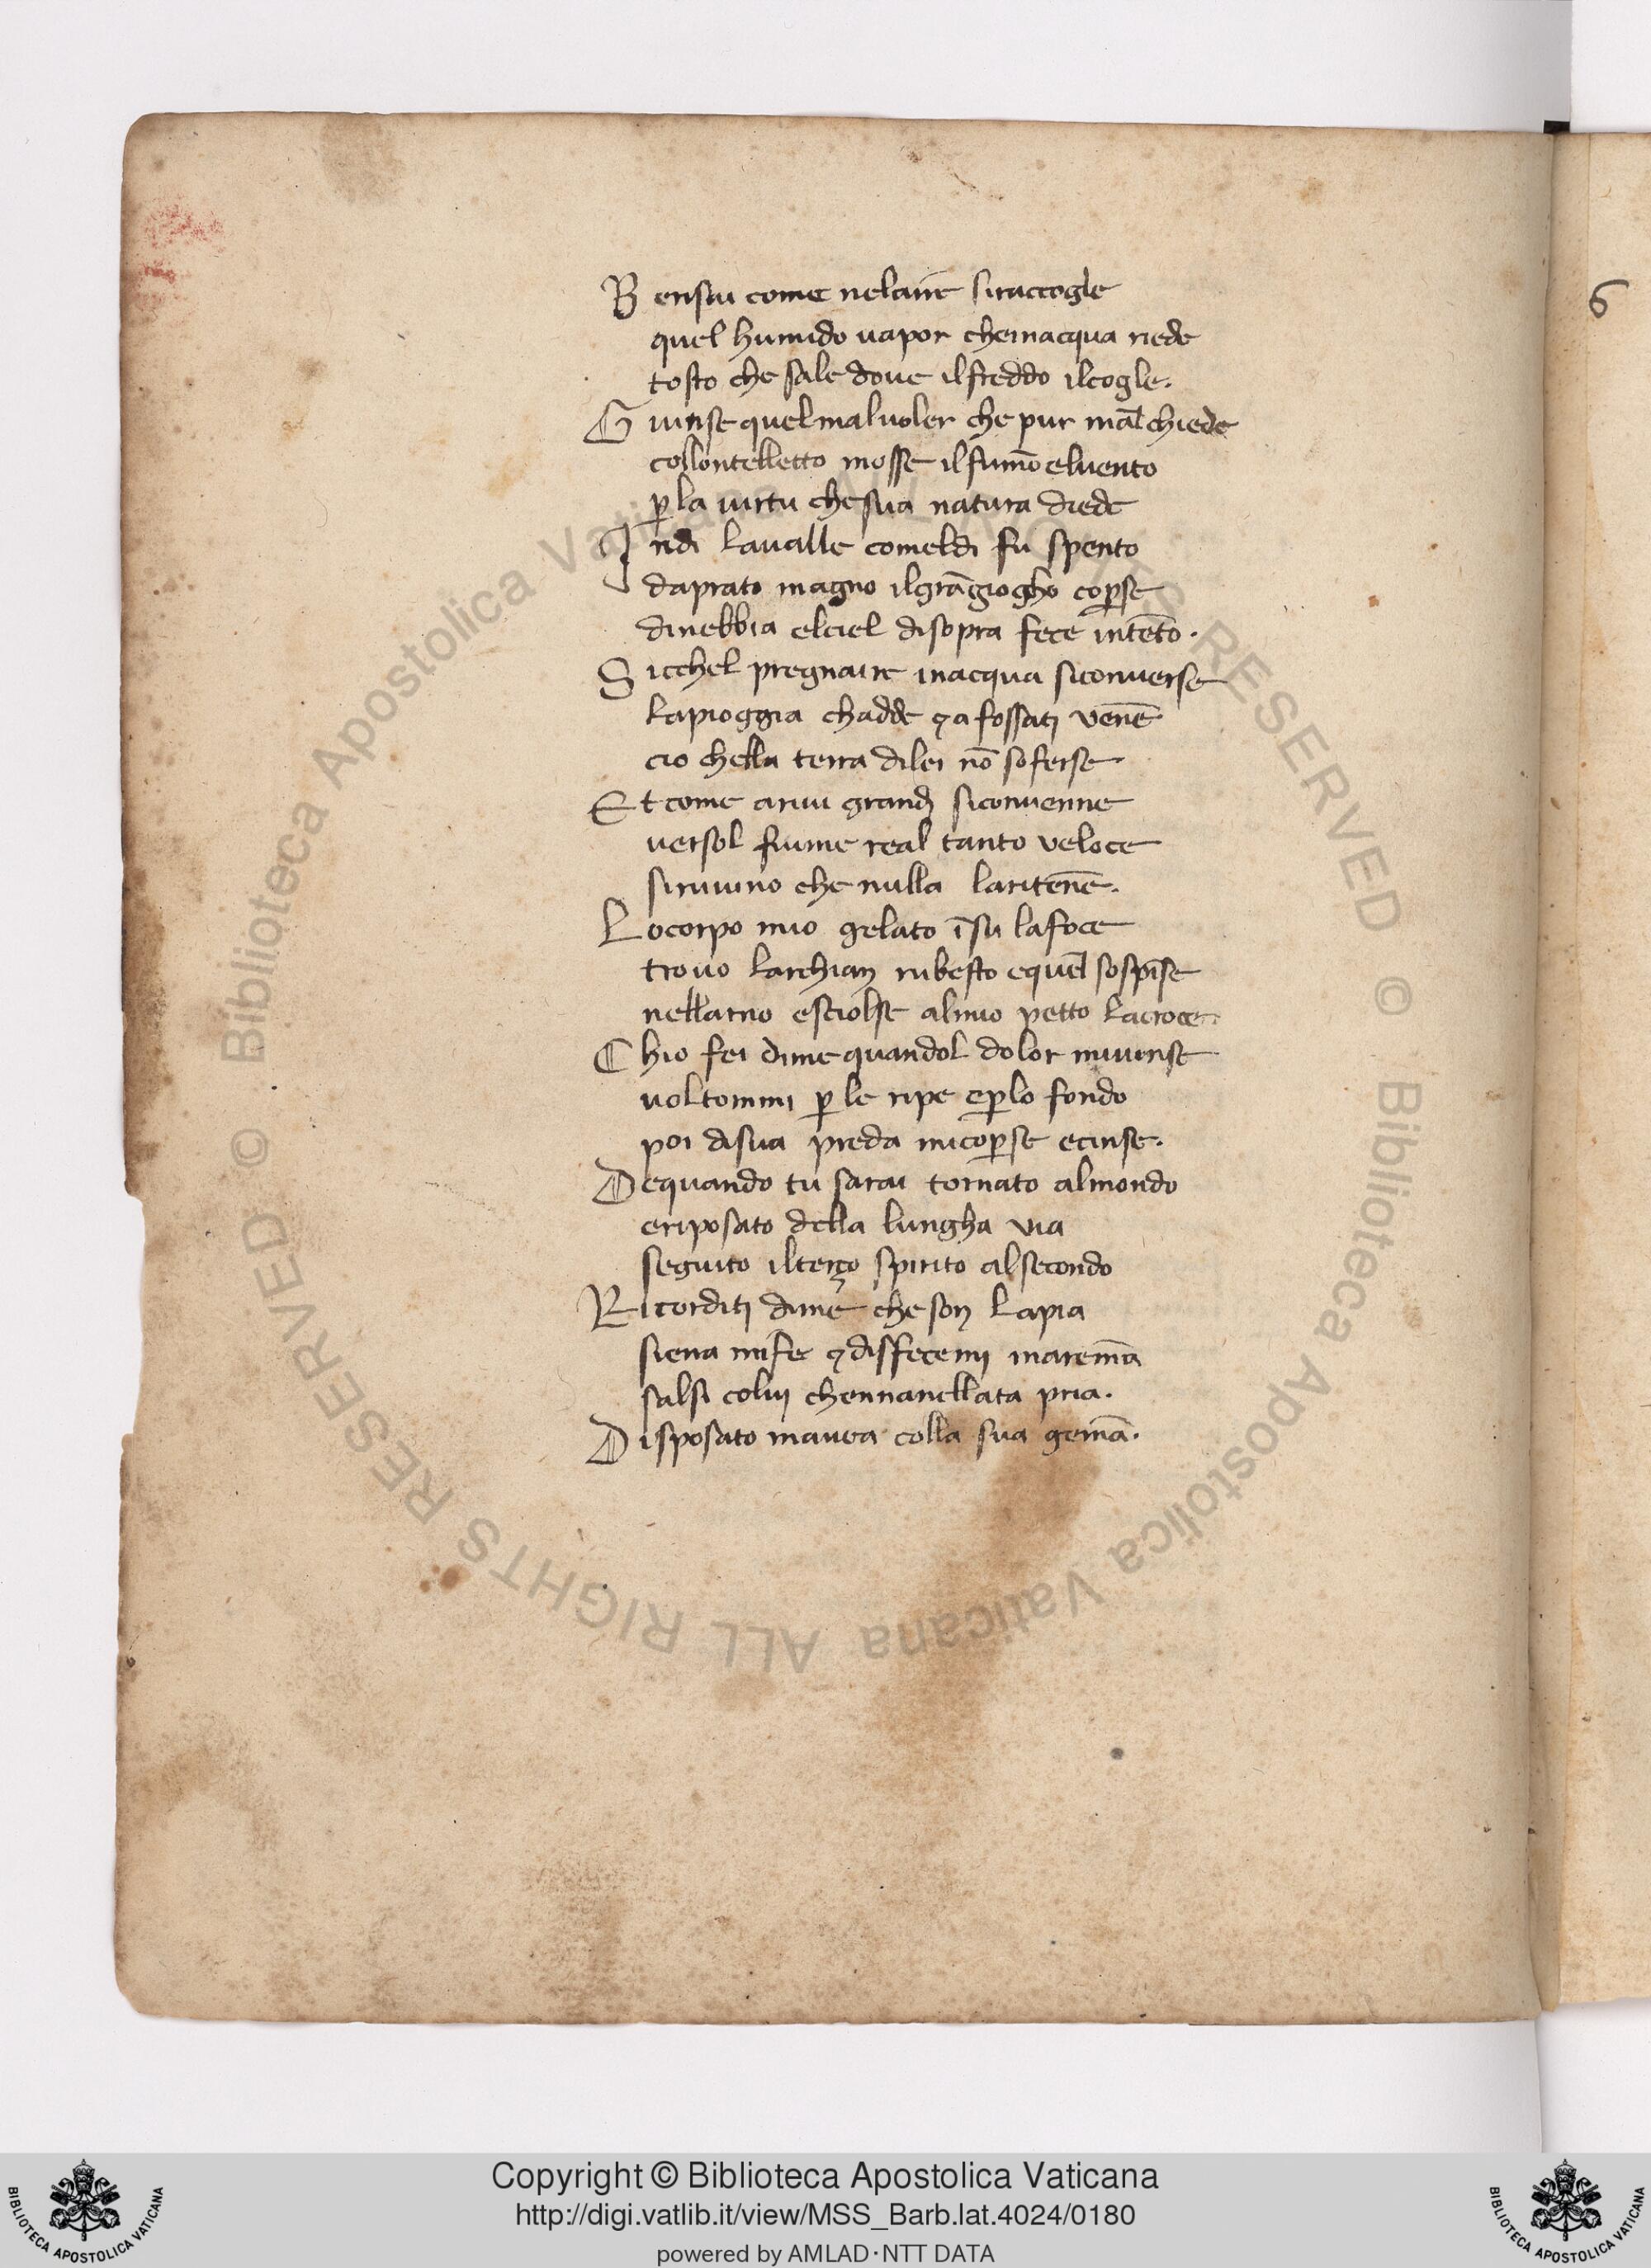 B ensai come nelaire siraccogle
quel humido uapor cheinacqua riede
tosto che sale doue ilfreddo ilcogle.
G iunse quelmaluoler che pur mal chiede
collontelletto mosse ilfumo eluento
ꝑ la uirtu che sua natura diede
I ndi laualle comeldi fu spento
daprato magno ilgrāgiogho coꝑse
dinebbia elciel disopra fece intēto.
S icchel pregnaire inacqua siconuerse
lapioggia chadde ⁊ a fossati venē
cio chella terra dilei nō soferse
E t come ariui grandj siconuenne
uersol fiume real tanto veloce
siruuino che nulla laritenē.
L ocorpo mio gelato ī su lafoce
trouo larchian rubesto equel sospīse
nellarno esciolse almio petto lacroce
C hio fei dime quandol dolor miuinse
uoltommi ꝑ le ripe eꝑlo fondo
poi disua preda micoꝑse ecinse.
D equando tu sarai tornato almondo
eriposato della lungha via
seguito ilterço spirito alsecondo
R icorditj dime che son lapia
siena mife ⁊ disfecemj maremā
salsi coluj chennanellata pria.
D isposato mauea colla sua gemā.
6
© Biblioteca Apostolica Vaticana ALL RIGHTS RESERVED © Biblioteca Apostolica Vaticana ALL RIGHTS RESERVED
Copyright © Biblioteca Apostolica Vaticana
http://digi.vatlib.it/view/MSS_Barb.lat.4024/0180
powered by AMLAD·NTT DATA
BIBLIOTECA APOSTOLICA VATICANA
BIBLIOTECA APOSTOLICA VATICANA